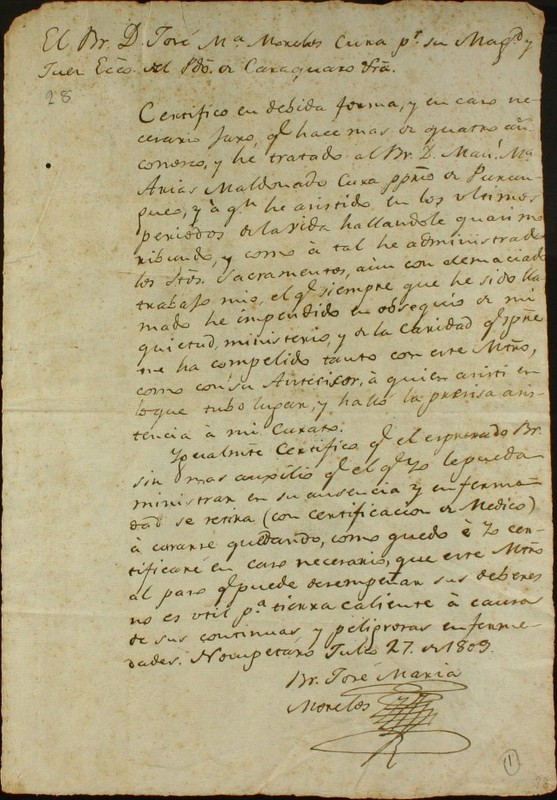 El Br. D. José Mª Morelos Cura pr. su Magd. y
Juez Ecco. del Pdo. de Caraquaro &ra.
28
Certifico en debida forma, y en caso ne-
cesario juro, qe. hace mas de quatro añ.
conosco, y he tratado al Br. D. Manl. Mª
Arias Maldonado Cura pprio de Purun-
gueo, y à qn. he asistido en los ultimos
periodos de la vida hallandole quasi mo
ribundo, y como à tal he administrado
los Stos. Sacramentos, aun con demaciado
trabajo mio, el qe. siempre que he sido lla
mado he impendido en obsequio de mi
quietud, ministerio, y de la Caridad qe. spñe
me ha compelido tanto con este Mtro,
como con su Antecesor, à quien asisti en
lo que tubo lugar, y halló la presisa asis-
tencia à mi Curato.
Ygualmte. Certifico qe. el expresado Br.
sin mas auxilio qe. el qe. Yo le pueda
ministrar en su ausencia y enferme
dad se retira (con certificacion de Medico)
à curarse quedando, como quedo è Yo cer-
tificaré en caso necesario, que este Mtro
al paso qe. puede desempeñar sus deberes
no es util pª. tierra caliente à causa
de sus continuas, y peligrosas enferme-
dades. Nocupetaro Julio 27. de 1809.
Br. José Maria
Morelos
1